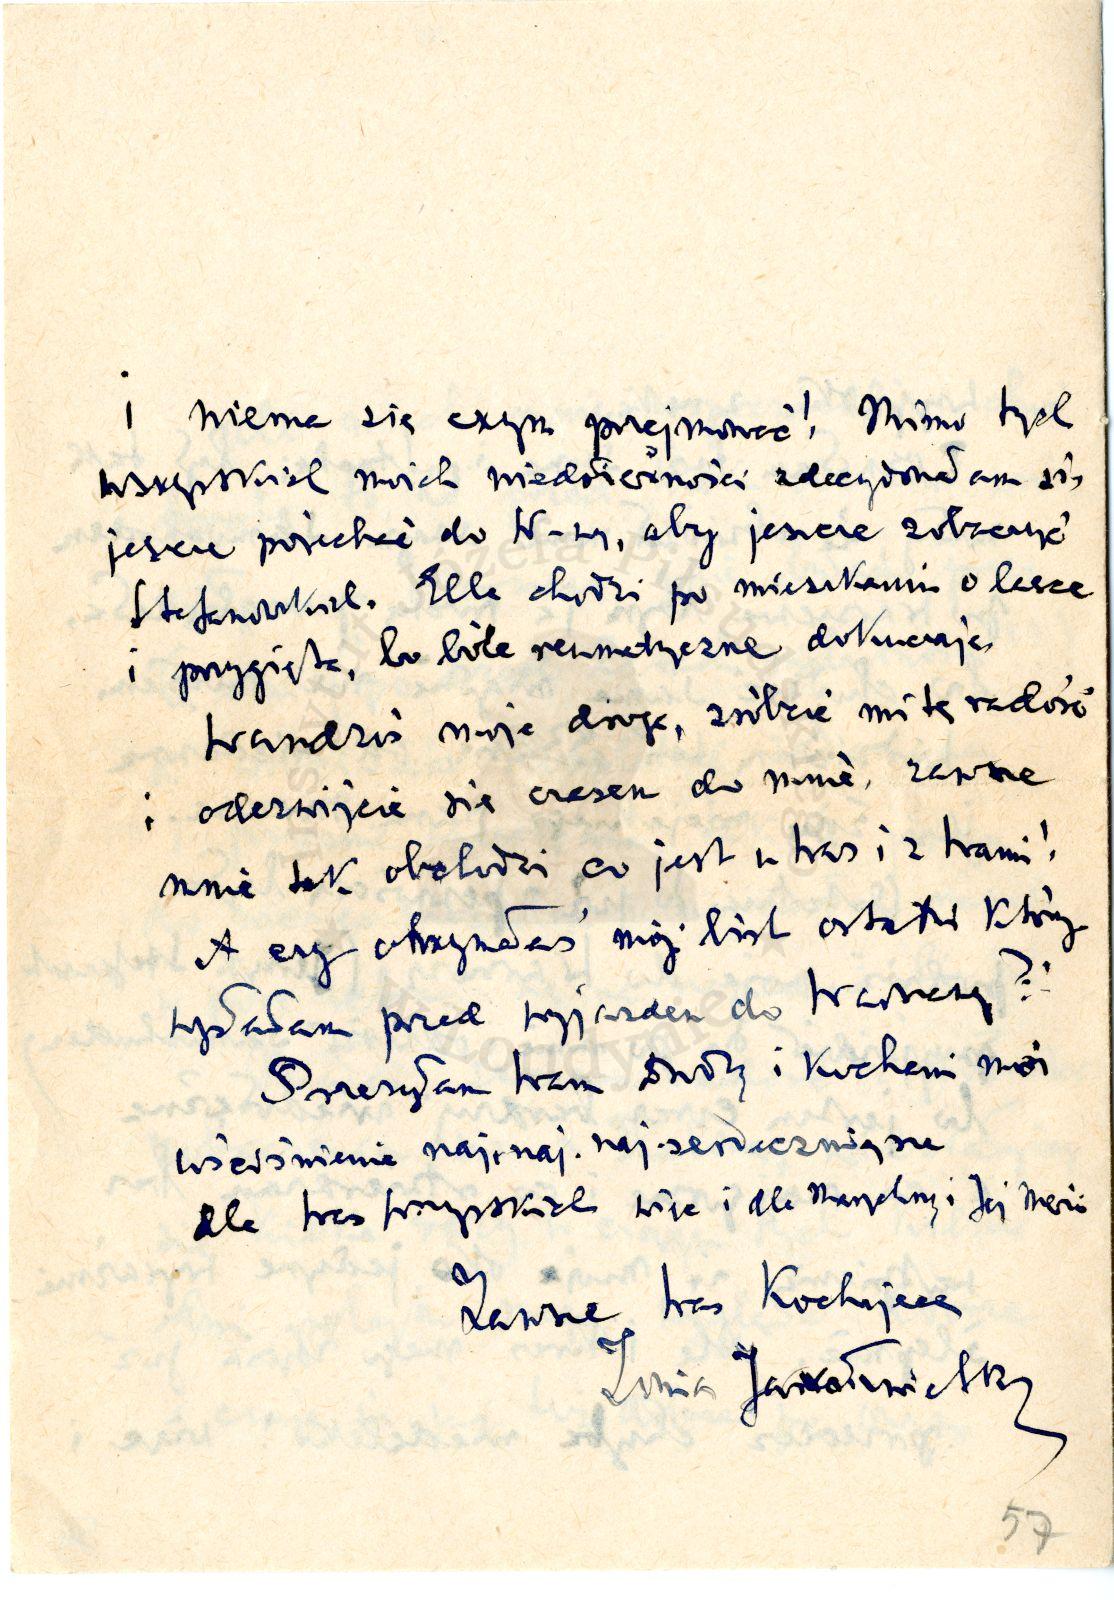 i niema się czym przejmować! Mimo tych
wszystkich moich niedołężności zdecydowałam się
jeszcze pojechać do W-wy, aby jeszcze zobaczyć
Stefanowskich. Ella chodzi po mieszkaniu o lasce
i przygięta, bo bóle reumatyczne dokuczają.
Wandziś moja droga, zróbcie mi tę radość
i odezwijcie się czasem do mnie, zawsze
mnie tak obchodzi co jest u Was i z Wami!
A czy otrzymałaś mój list ostatni który
wysłałam przed wyjazdem do Warszawy?!
Przesyłam Wam drodzy i kochani moi
uściśnienie naj, naj. naj. serdeczniejsze
dla Was wszystkich więc i dla Marychny i Jej Męża
Zawsze Was Kochająca
57